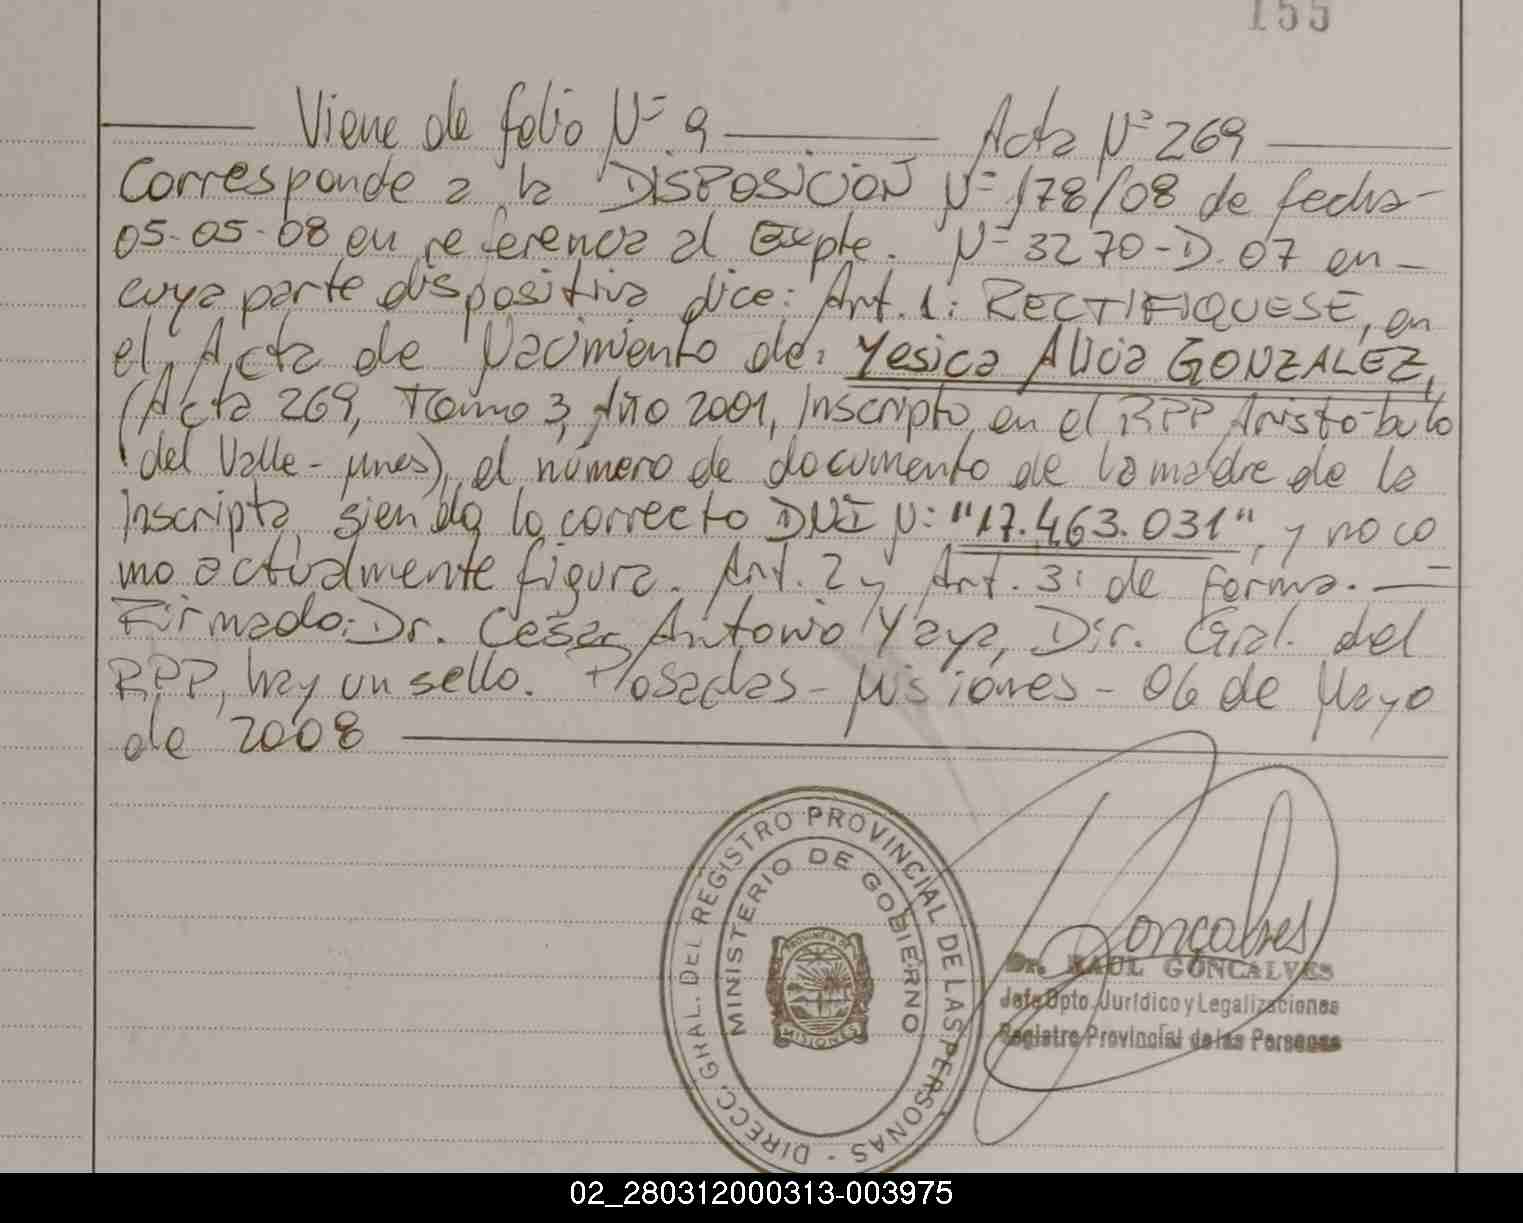 155
Viene de folio Nº 9 Acta Nº 269
Corresponde a la DISPOSICION Nº 178/08 de fecha
05-05-08 en referencia al Expte. Nº 3270-D.07 en
cuya parte dispositiva dice: Art. 1: RECTIFIQUESE, en
el Acta de Nacimiento de: Yesica Alicia GONZALEZ,
(Acta 269, Tomo 3, Año 2001, Inscripto en el RPP Aristobulo
del Valle - Mnes), el número de documento de la madre de la
Inscripta, siendo lo correcto DNI N: "17.463.031", y no co
mo actualmente figura. Art. 2 y Art. 3: de forma.
Firmado: Dr. Cesar Antonio Yaya, Dir. Gral. del
RPP, hay un sello. Posadas - Misiones - 06 de Mayo
de 2008
DIRECC. GRAL. DEL REGISTRO PROVINCIAL DE LAS PERSONAS -
MINISTERIO DE GOBIERNO
PROVINCIA DE
MISIONES
Goncalves
Dr. RAUL GONCALVES
Jefe Dpto. Jurídico y Legalizaciones
Registro Provincial de las Personas
02_280312000313-003975